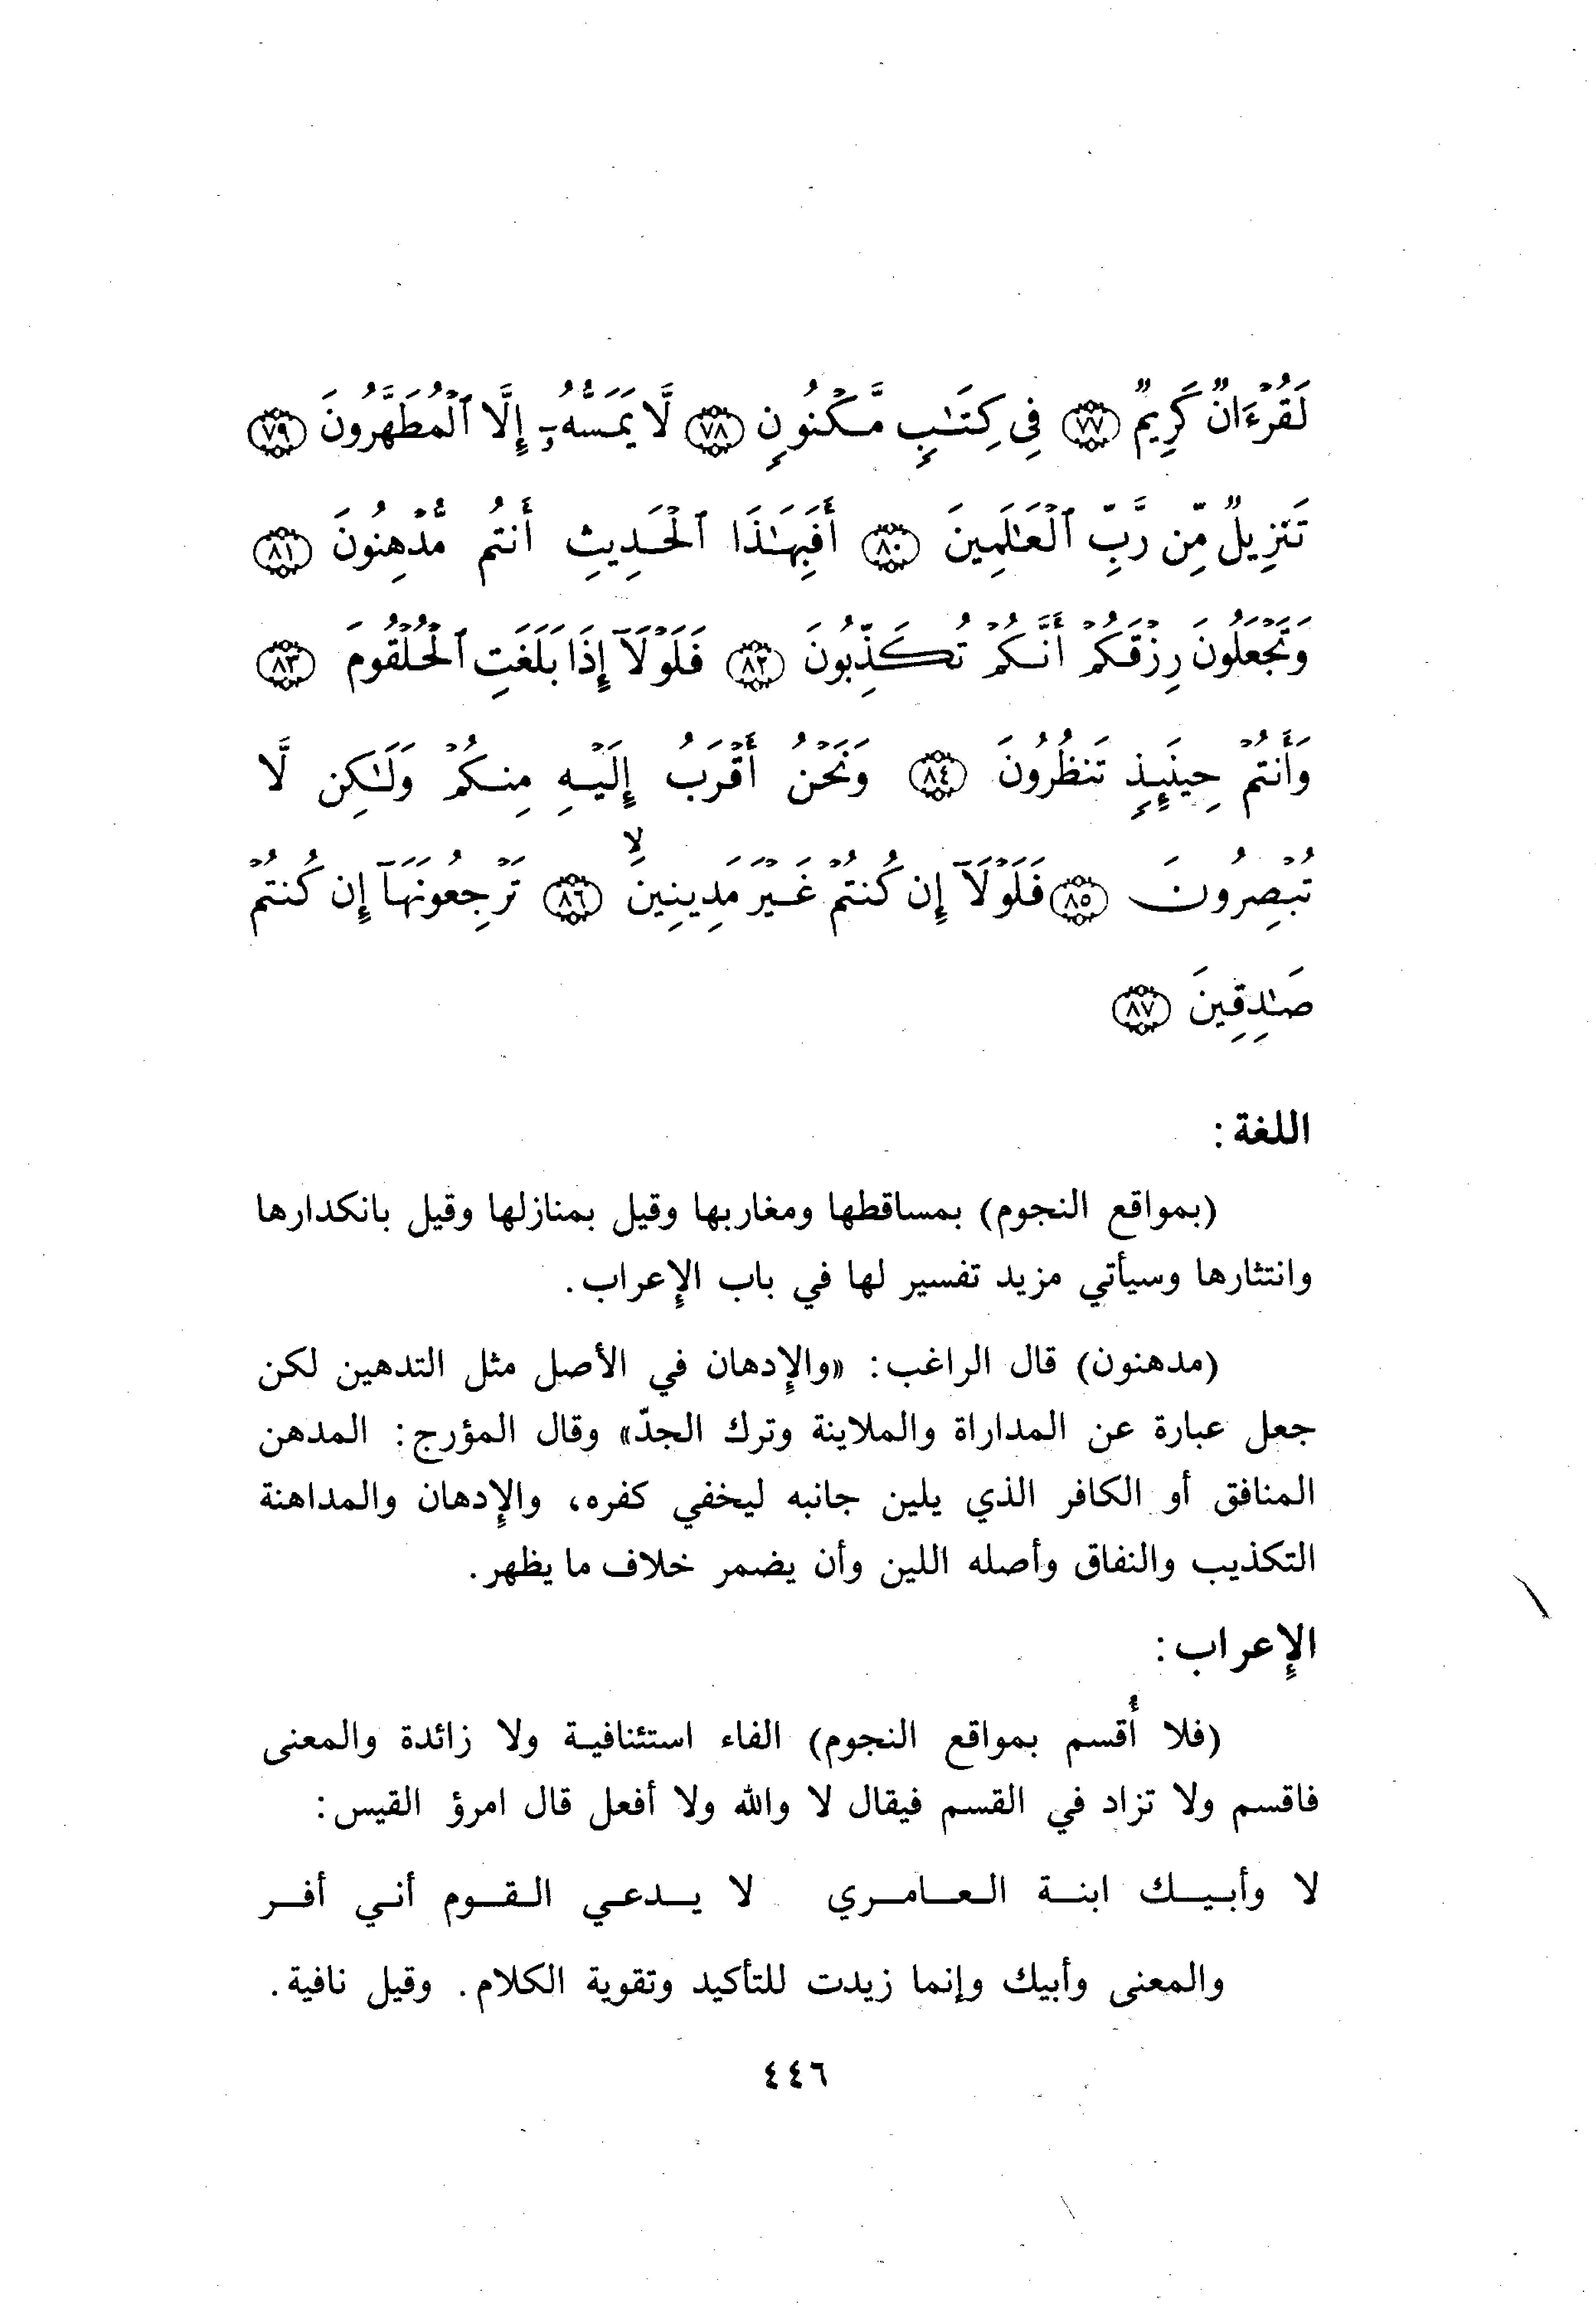 لَقُرْءَانٌ كَرِيمٌ ﴿٧٧﴾ فِى كِتَـٰبٍ مَّكْنُونٍ ﴿٧٨﴾ لَّا يَمَسُّهُۥٓ إِلَّا ٱلْمُطَهَّرُونَ ﴿٧٩﴾
تَنزِيلٌ مِّن رَّبِّ ٱلْعَـٰلَمِينَ ﴿٨٠﴾ أَفَبِهَـٰذَا ٱلْحَدِيثِ أَنتُم مُّدْهِنُونَ ﴿٨١﴾
وَتَجْعَلُونَ رِزْقَكُمْ أَنَّكُمْ تُكَذِّبُونَ ﴿٨٢﴾ فَلَوْلَآ إِذَا بَلَغَتِ ٱلْحُلْقُومَ ﴿٨٣﴾
وَأَنتُمْ حِينَئِذٍ تَنظُرُونَ ﴿٨٤﴾ وَنَحْنُ أَقْرَبُ إِلَيْهِ مِنكُمْ وَلَـٰكِن لَّا
تُبْصِرُونَ ﴿٨٥﴾ فَلَوْلَآ إِن كُنتُمْ غَيْرَ مَدِينِينَ ۙ ﴿٨٦﴾ تَرْجِعُونَهَآ إِن كُنتُمْ
صَـٰدِقِينَ ﴿٨٧﴾
اللغة :
(بمواقع النجوم) بمساقطها ومغاربها وقيل بمنازلها وقيل بانكدارها
وانتثارها وسيأتي مزيد تفسير لها في باب الإعراب.
(مدهنون) قال الراغب: «والإدهان في الأصل مثل التدهين لكن
جعل عبارة عن المداراة والملاينة وترك الجدّ» وقال المؤرج: المدهن
المنافق أو الكافر الذي يلين جانبه ليخفي كفره، والإدهان والمداهنة
التكذيب والنفاق وأصله اللين وأن يضمر خلاف ما يظهر.
الإعراب :
(فلا أُقسم بمواقع النجوم) الفاء استئنافية ولا زائدة والمعنى
فاقسم ولا تزاد في القسم فيقال لا والله ولا أفعل قال امرؤ القيس:
لا وأبيك ابنة العامري لا يدعي القوم أني أفر
والمعنى وأبيك وإنما زيدت للتأكيد وتقوية الكلام. وقيل نافية.
٤٤٦